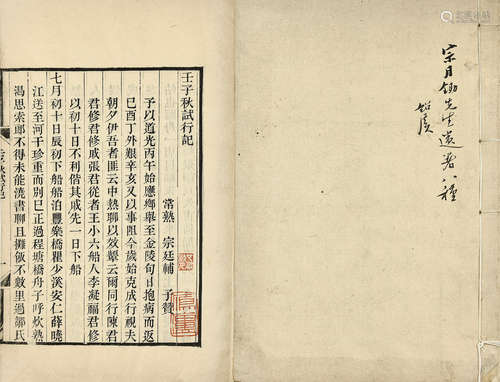 宗月鋤先生遺著八種
壬子秋試行記
常熟 宗廷輔 子贊
予以道光丙午始應鄉舉至金陵旬日抱病而返
己酉丁外艱辛亥又以事阻今歲始克成行視夫
朝夕伊吾者匪云中熱聊以效顰云爾同行陳君
君修君修戚張君從者王小六船人李凝福君修
以初十日不利偕其戚先一日下船
七月初十日辰初下船船泊豐樂橋瞿少溪安仁薛曉
江送至河干珍重而別巳正過程塘橋舟子呼炊熟
渴思索郎不得未能澆書聊且攤飯不數里過鄒氏